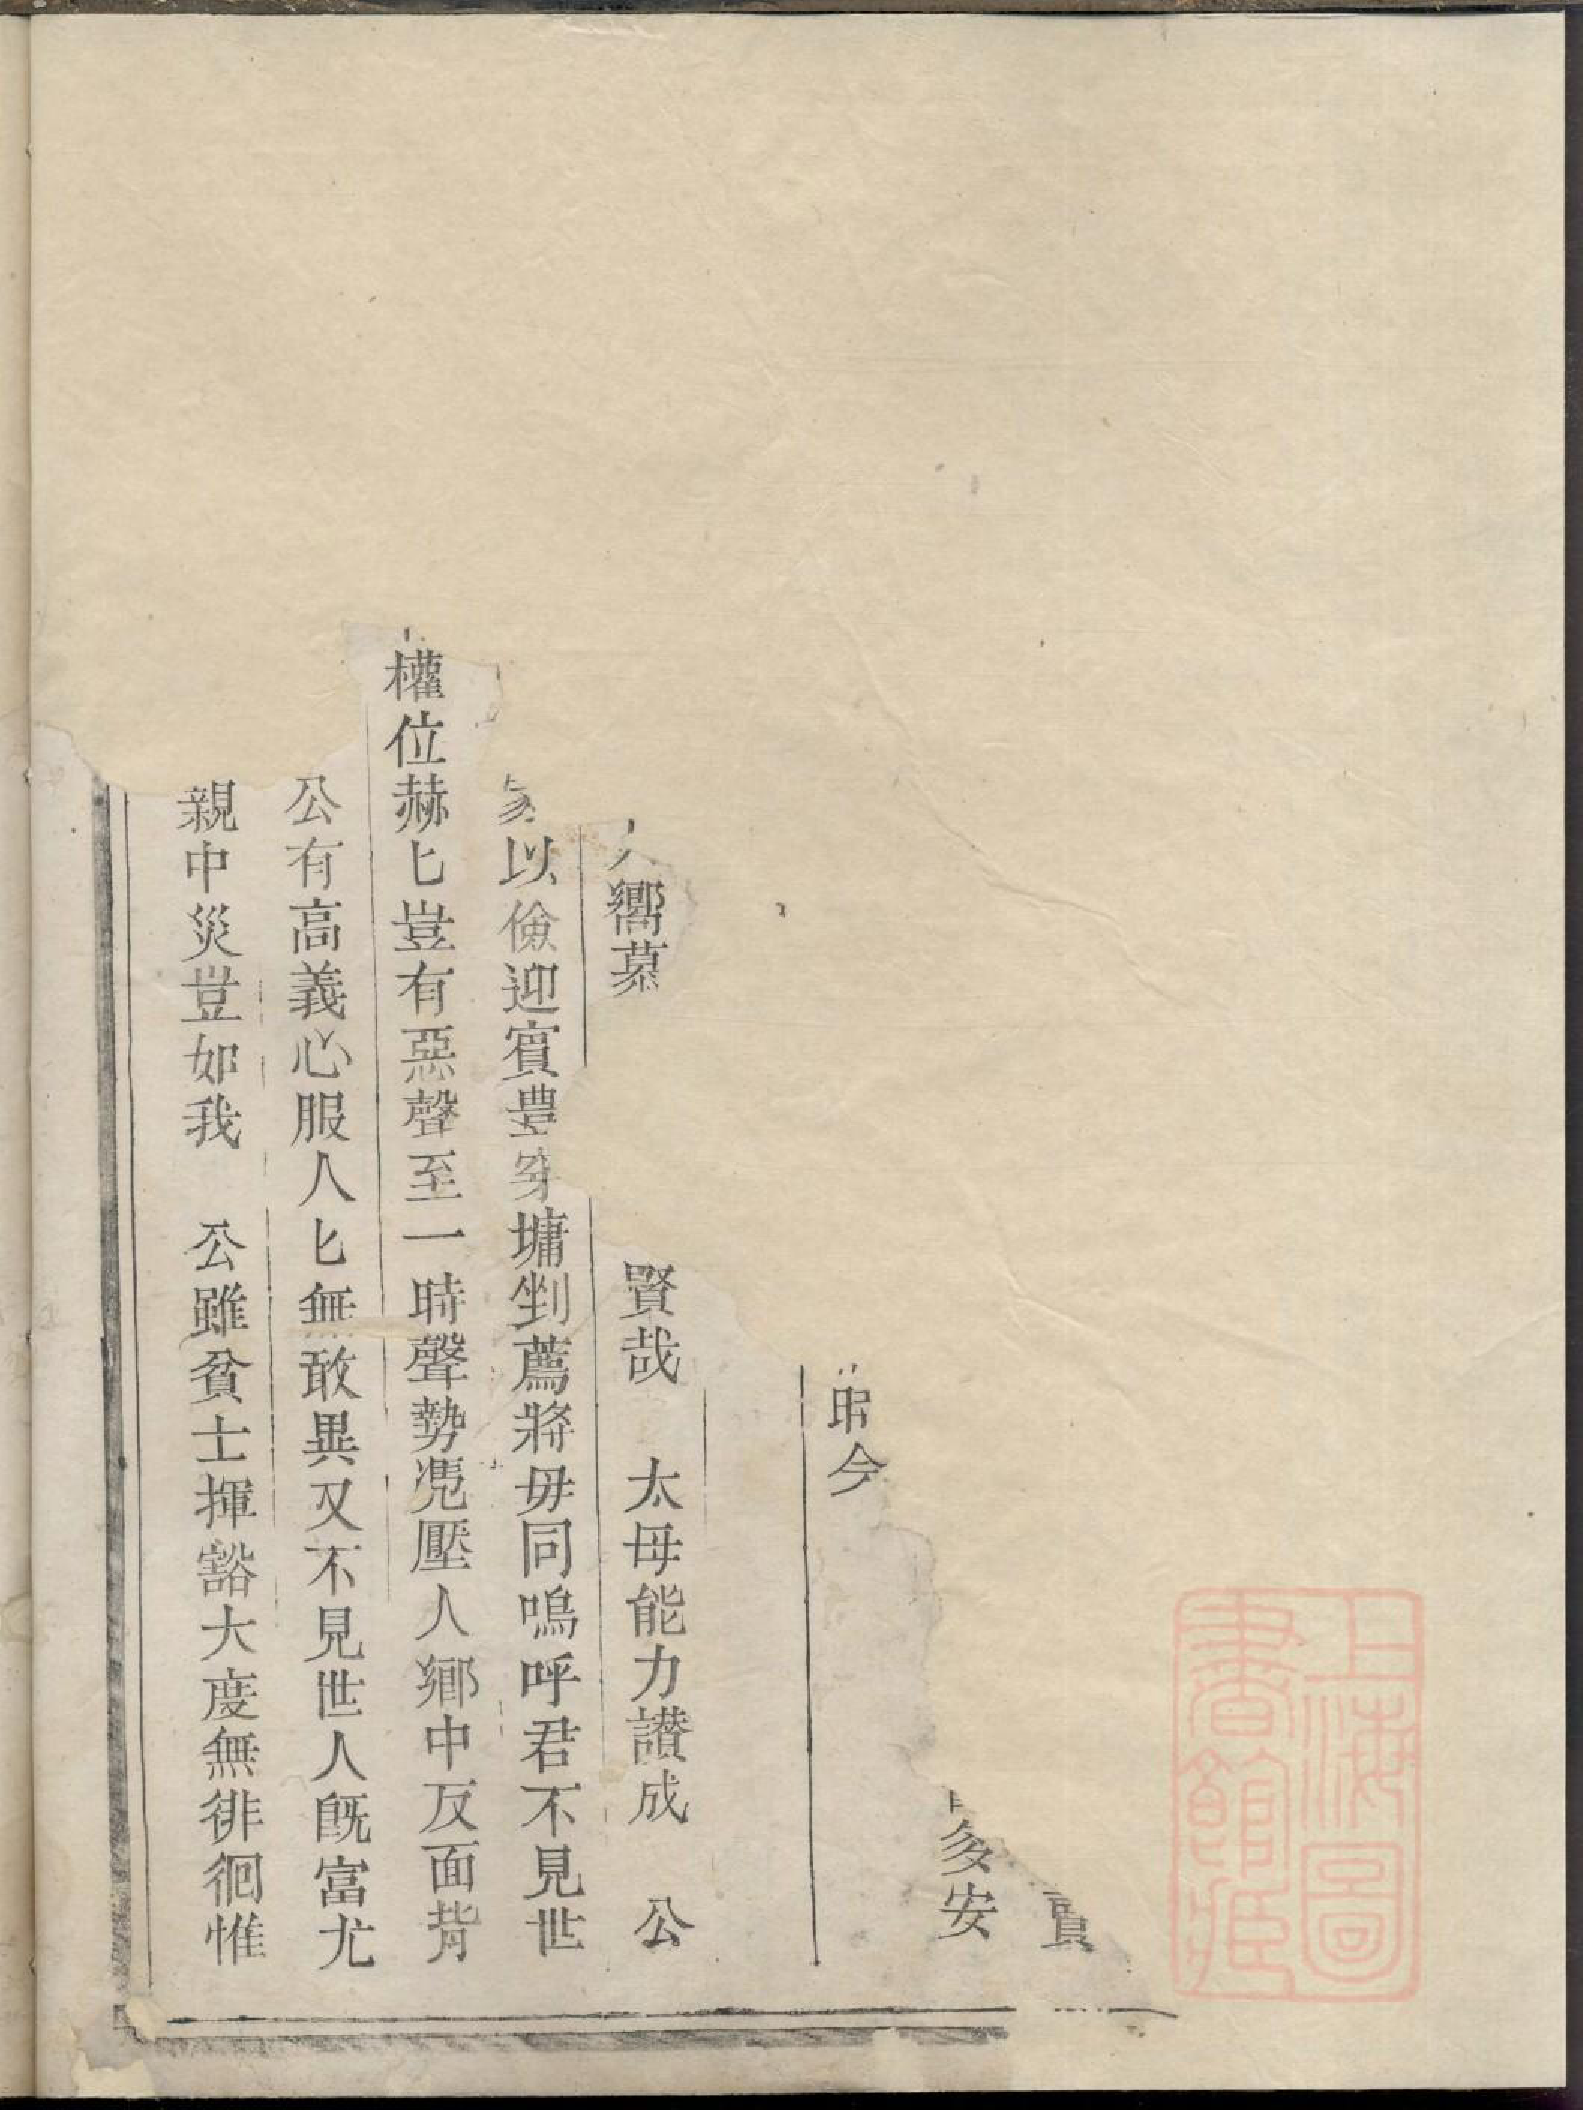 多安
今
嚮慕
賢哉　太母能力讃成　公
以儉迎賓豊穿墉剉薦將毋同嗚呼君不見世
權位赫匕豈有惡聲至一時聲勢凴壓人鄉中反面背
公有高義心服人匕無敢異又不見世人旣富尤
親中災豈如我　公雖貧士揮豁大度無徘徊惟
上海圖書館藏